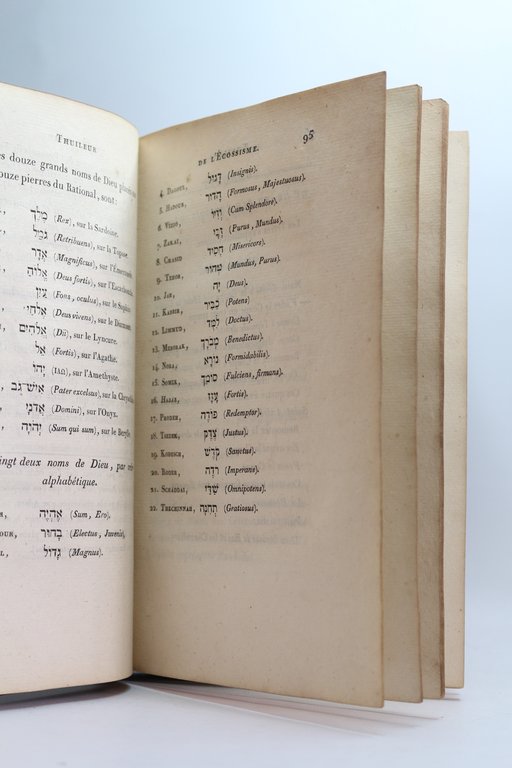 THUILEUR
es douze grands noms de Dieu
ouze pierres du Rational, sont:
מֶלֶךְ (Rex), sur la Sardone.
גמול (Retribuens), sur la Topaze.
אדר (Magnificus), sur l'Émeraude
אלוה (Deus fortis), sur l'Escarboucle
(Fons, oculus), sur le Saphir
אלהי (Deus vivens), sur le Diamant.
אלהים (Dii), sur le Lyncure.
אל (Fortis), sur l'Agathe.
יהו (IAΩ), sur l'Amethyste.
איש־גב (Pater excelsus), sur la Chrysolite
אדני (Domini), sur l'Onyx.
יהוה (Sum qui sum), sur le Berylle.
ingt deux noms de Dieu, par
alphabétique.
אהיה (Sum, Ero).
OUR, בחור (Electus, Juvenis).
L, גדול (Magnus).
DE L'ÉCOSSISME. 95
4. דגול (Insignis).
5. HADOUR, הדור (Formosus, Majestuosus).
6. (Cum Splendore).
7. ZAKAI, זכי (Purus, Mundus).
8. חסיד (Misericors).
9. TEHOR, טהור (Mundus, Purus).
10. JAH, יה (Deus).
11. KABIR, כביר (Potens)
12. LIMMUD, למד (Doctus).
13. מברך (Benedictus).
14. NORA, נורא (Formidabilis).
15. SOMEK, סומך (Fulciens, firmans).
16. עזז (Fortis).
17. PHODEH, פודה (Redemptor).
18. TSEDEK, צדק (Justus).
19. KODESCH, קדש (Sanctus).
20. רדה (Imperans).
21. SCHADDAI, שדי (Omnipotens).
22. THECHINNAH, תחנה (Gratiosus).